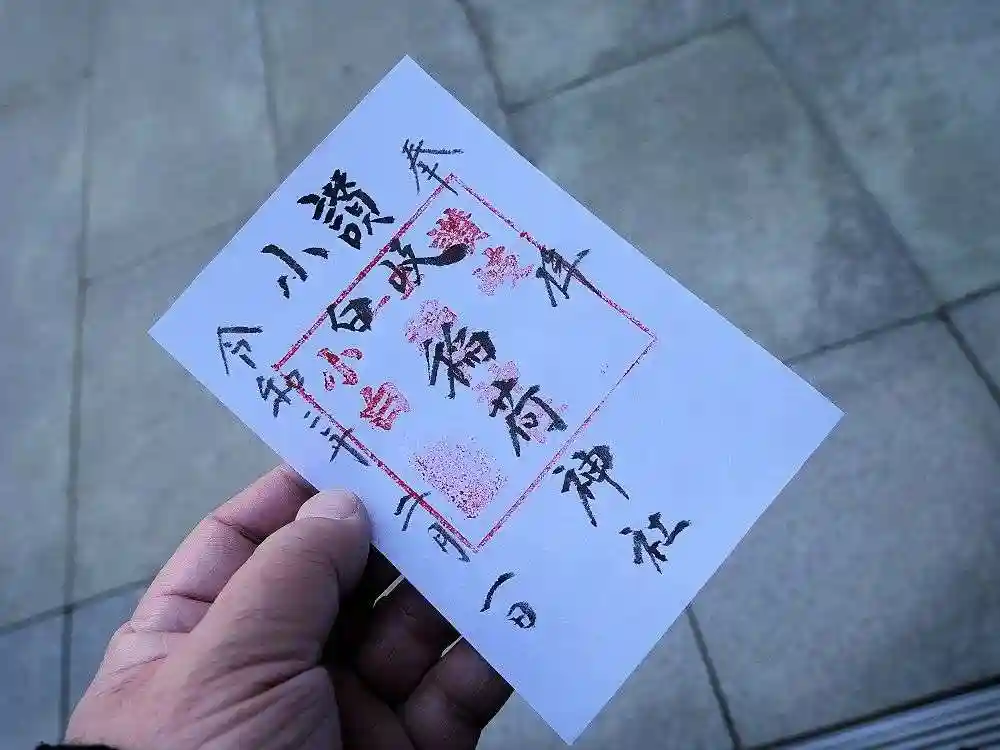 奉拝
讃岐
小白
稲荷神社
令和三年二月一日